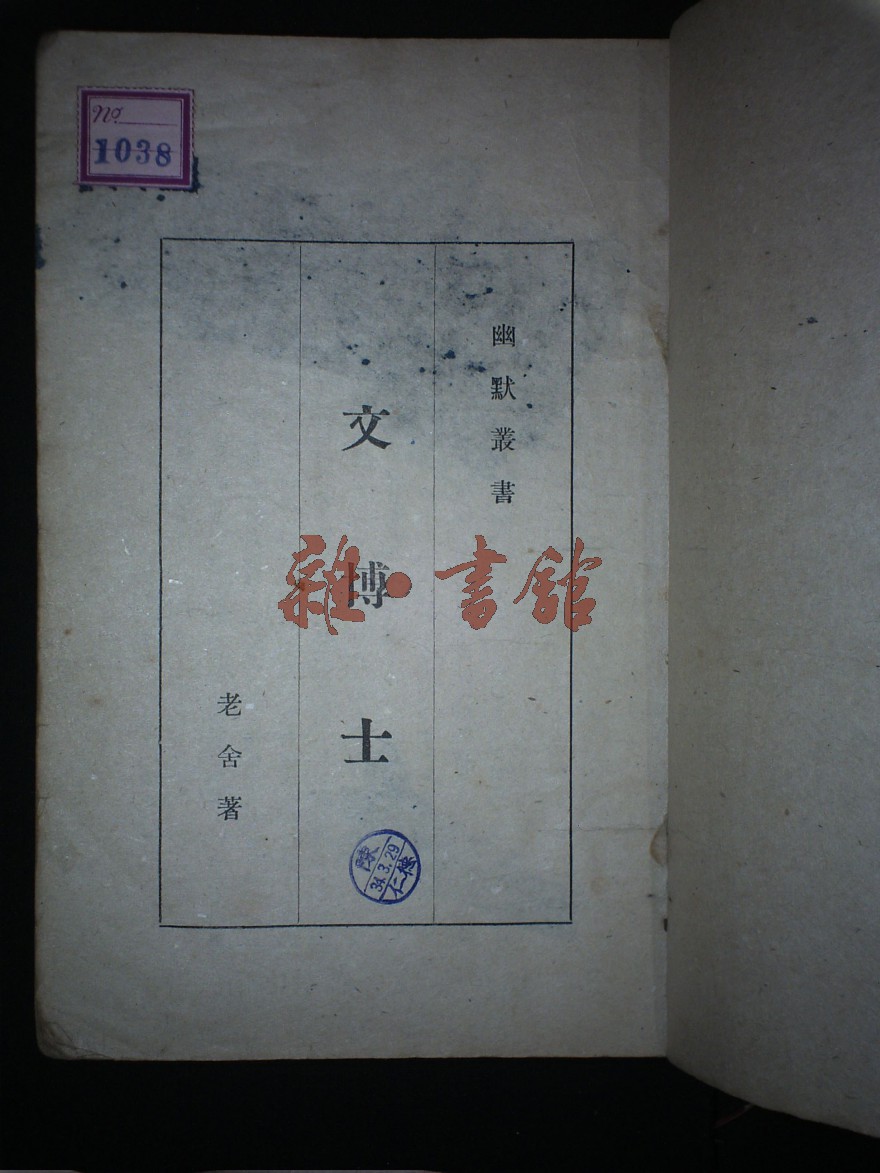 No.
1038
幽默叢書
文博士
老舍著
雜·書館
陳
34.3.29
仁